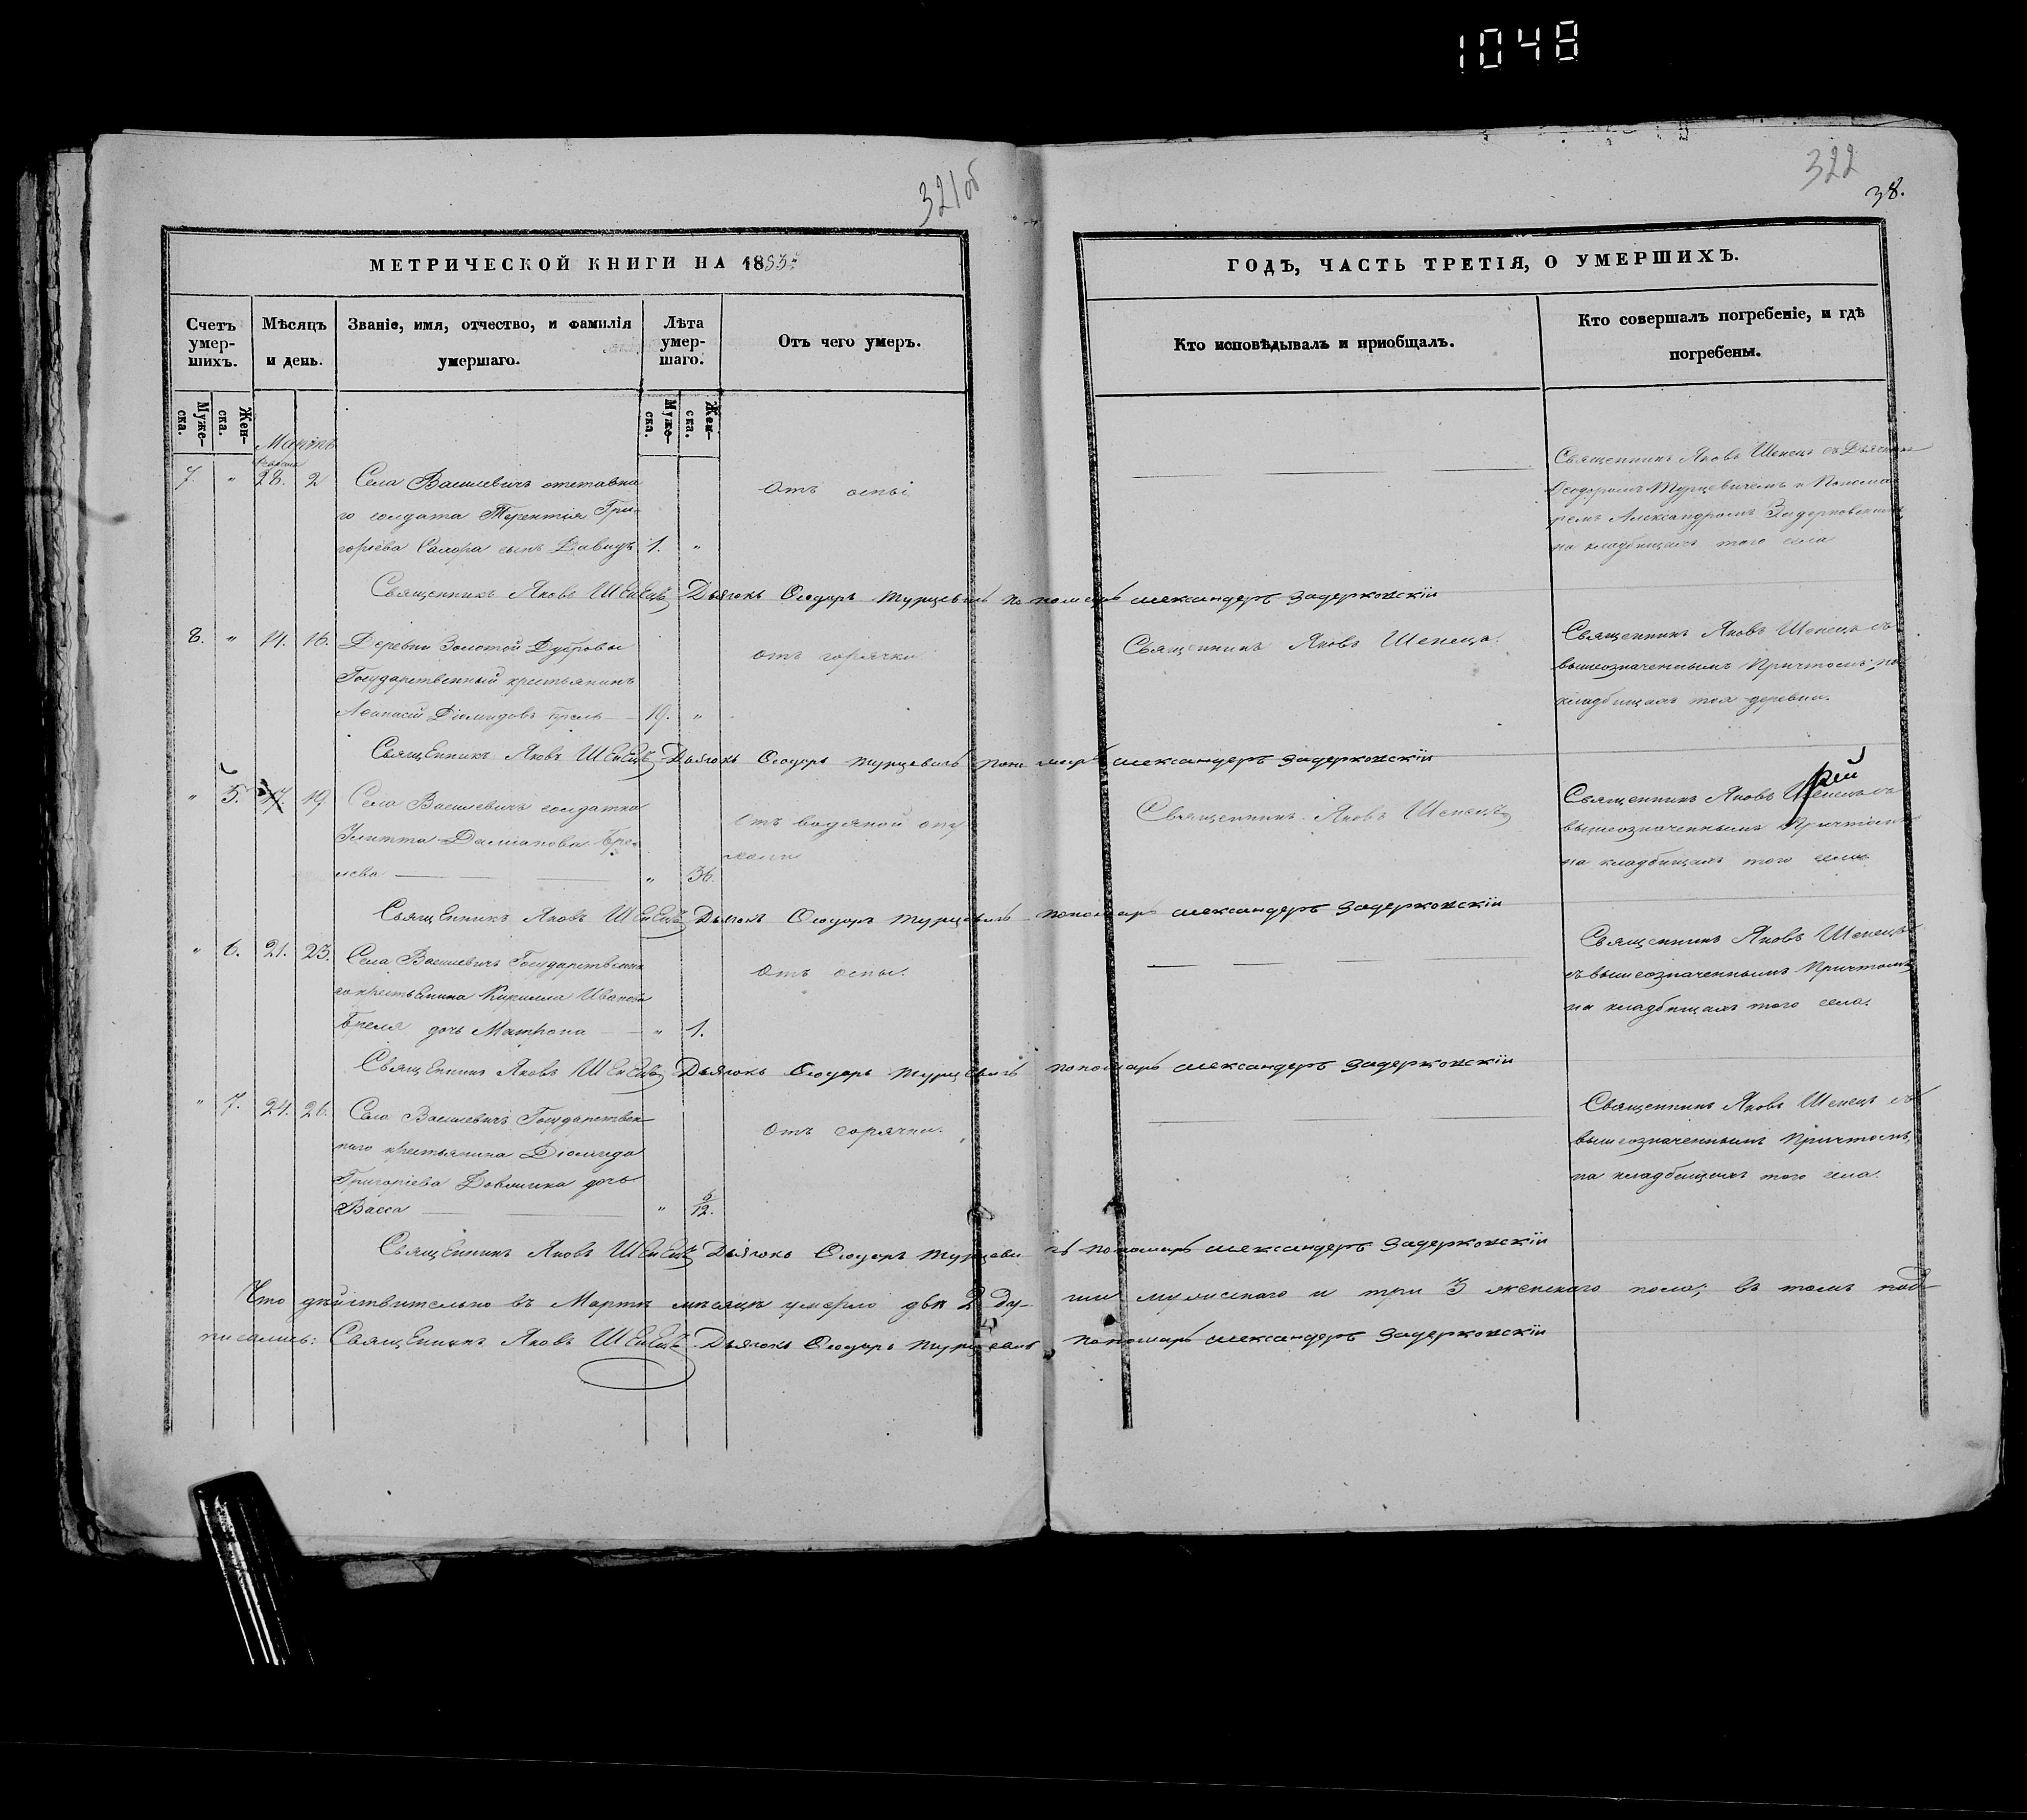 1048
321об
322
38.
МЕТРИЧЕСКОЙ КНИГИ НА 1853й
ГОДЪ, ЧАСТЬ ТРЕТІЯ, О УМЕРШИХЪ.
Счетъ умер-шихъ.
Мѣсяцъ и день.
Званіе, имя, отчество, и фамилія умершаго.
Лѣта умер-шаго.
Отъ чего умеръ.
Кто исповѣдывалъ и приобщалъ.
Кто совершалъ погребеніе, и гдѣ погребены.
Муже-ска.
Жен-ска.
Муже-ска.
Жен-ска.
7. " 28. 2
Села Василевичъ отставна
го солдата Терентія Гри-
горіева сынъ Давидъ 1. "
Отъ оспы
Священникъ Яковъ Шепецъ съ Дьячкомъ
Ѳеодоромъ Турцевичемъ и Понома
ремъ Александромъ Задерковскимъ
на кладбищахъ того села
Священникъ Яковъ Шепецъ Дьячокъ Ѳеодоръ Турцевичъ пономарь александеръ Задерковскій
8. " 14. 16.
Деревни Золотой Дубровы
Государственный крестьянинъ
Аѳанасій Діомидовъ Брель 19. "
отъ горячки
Священникъ Яковъ Шепецъ.
Священникъ Яковъ Шепецъ съ
вышеозначеннымъ Причтомъ, на
кладбищахъ тоя деревни.
Священникъ Яковъ Шепецъ Дьячокъ Ѳеодоръ Турцевичъ пономарь александеръ Задерковскій
" 5. 17. 19
Села Василевичъ солдатка
Улитта Даміанова Бре-
лева " 36.
Отъ водяной опу
холи
Священникъ Яковъ Шепецъ
Священникъ Яковъ Шепецъ съ
вышеозначеннымъ Причтомъ
на кладбищахъ того села
Священникъ Яковъ Шепецъ Дьячокъ Ѳеодоръ Турцевичъ пономарь александеръ Задерковскій
" 6. 21. 23.
Села Василевичъ Государственна
го крестьянина Кирилла Иванова
Бреля дочь Матрона " 1.
Отъ оспы.
Священникъ Яковъ Шепецъ
съ вышеозначеннымъ Причтомъ
на кладбищахъ того села.
Священникъ Яковъ Шепецъ Дьячокъ Ѳеодоръ Турцевичъ пономарь александеръ Задерковскій
" 7. 24. 26.
Села Василевичъ Государствен
наго крестьянина Діомида
Григоріева дочь
Васса "
Отъ горячки.
Священникъ Яковъ Шепецъ съ
вышеозначеннымъ Причтомъ,
на кладбищахъ того села.
Священникъ Яковъ Шепецъ Дьячокъ Ѳеодоръ Турцевичъ пономарь александеръ Задерковскій
Что дѣйствительно въ Мартѣ мѣсяцѣ умерло двѣ 2 ду-ши мужескаго и три 3 женскаго пола; въ томъ под-
писались: Священникъ Яковъ Шепецъ Дьячокъ Ѳеодоръ Турцевичъ пономарь александеръ Задерковскій